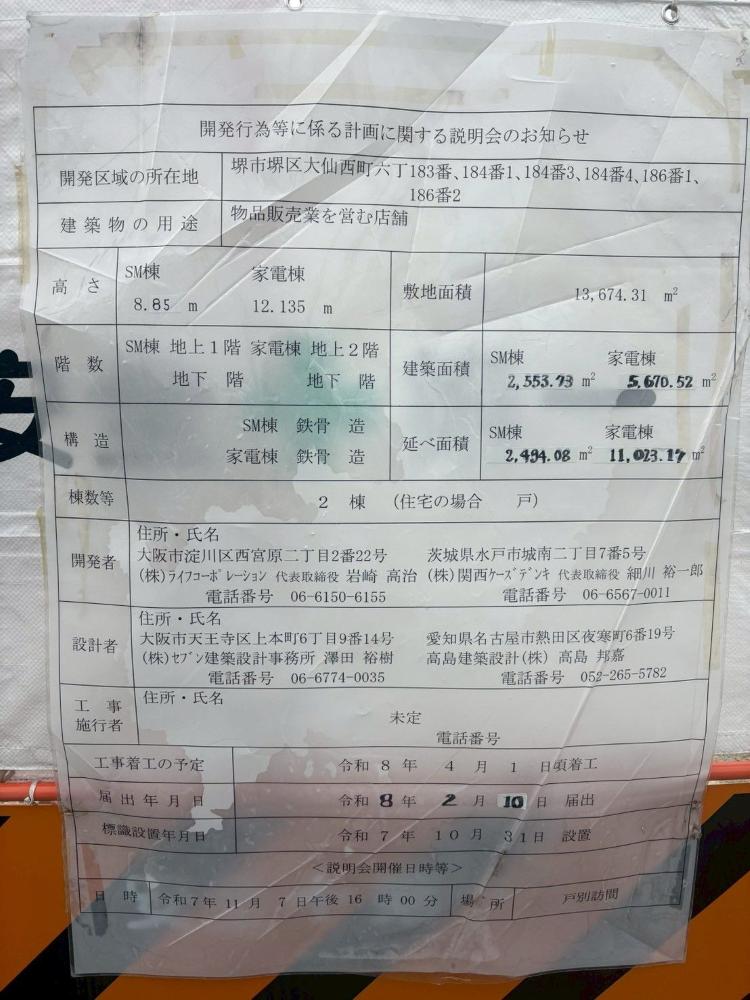 開発行為等に係る計画に関する説明会のお知らせ
開発区域の所在地 堺市堺区大仙西町六丁183番、184番1、184番3、184番4、186番1、
186番2
建築物の用途 物品販売業を営む店舗
高さ SM棟 家電棟
8.85 m 12.135 m
敷地面積 13,674.31 m²
階数 SM棟 地上1階 家電棟 地上2階
地下 階 地下 階
建築面積 SM棟 家電棟
2,553.73 m² 5,670.52 m²
構造 SM棟 鉄骨 造
家電棟 鉄骨 造
延べ面積 SM棟 家電棟
2,494.08 m² 11,023.17 m²
棟数等 2 棟 (住宅の場合 戸)
開発者 住所・氏名
大阪市淀川区西宮原二丁目2番22号 茨城県水戸市城南二丁目7番5号
(株)ライフコーポレーション 代表取締役 岩崎 高治 (株)関西ケーズデンキ 代表取締役 細川 裕一郎
電話番号 06-6150-6155 電話番号 06-6567-0011
設計者 住所・氏名
大阪市天王寺区上本町6丁目9番14号 愛知県名古屋市熱田区夜寒町6番19号
(株)セブン建築設計事務所 澤田 裕樹 高島建築設計(株) 高島 邦嘉
電話番号 06-6774-0035 電話番号 052-265-5782
工事施行者 住所・氏名
未定
電話番号
工事着工の予定 令和 8 年 4 月 1 日頃着工
届出年月日 令和 8 年 2 月 10 日 届出
標識設置年月日 令和 7 年 10 月 31日 設置
<説明会開催日時等>
日時 令和7年 11月 7日午後 16 時 00 分 場所 戸別訪問